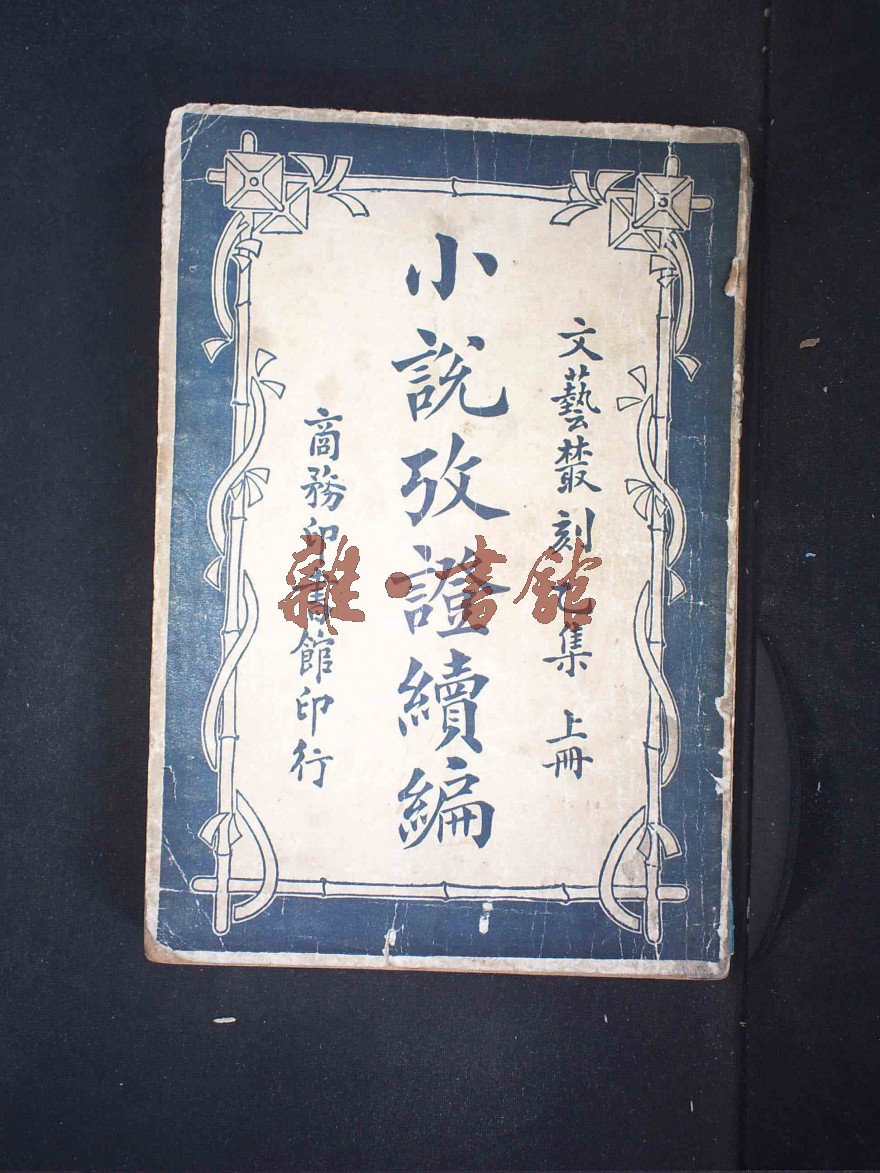 文藝樷刻乙集 上冊
小說攷證續編
商務印書館印行
雜·書館